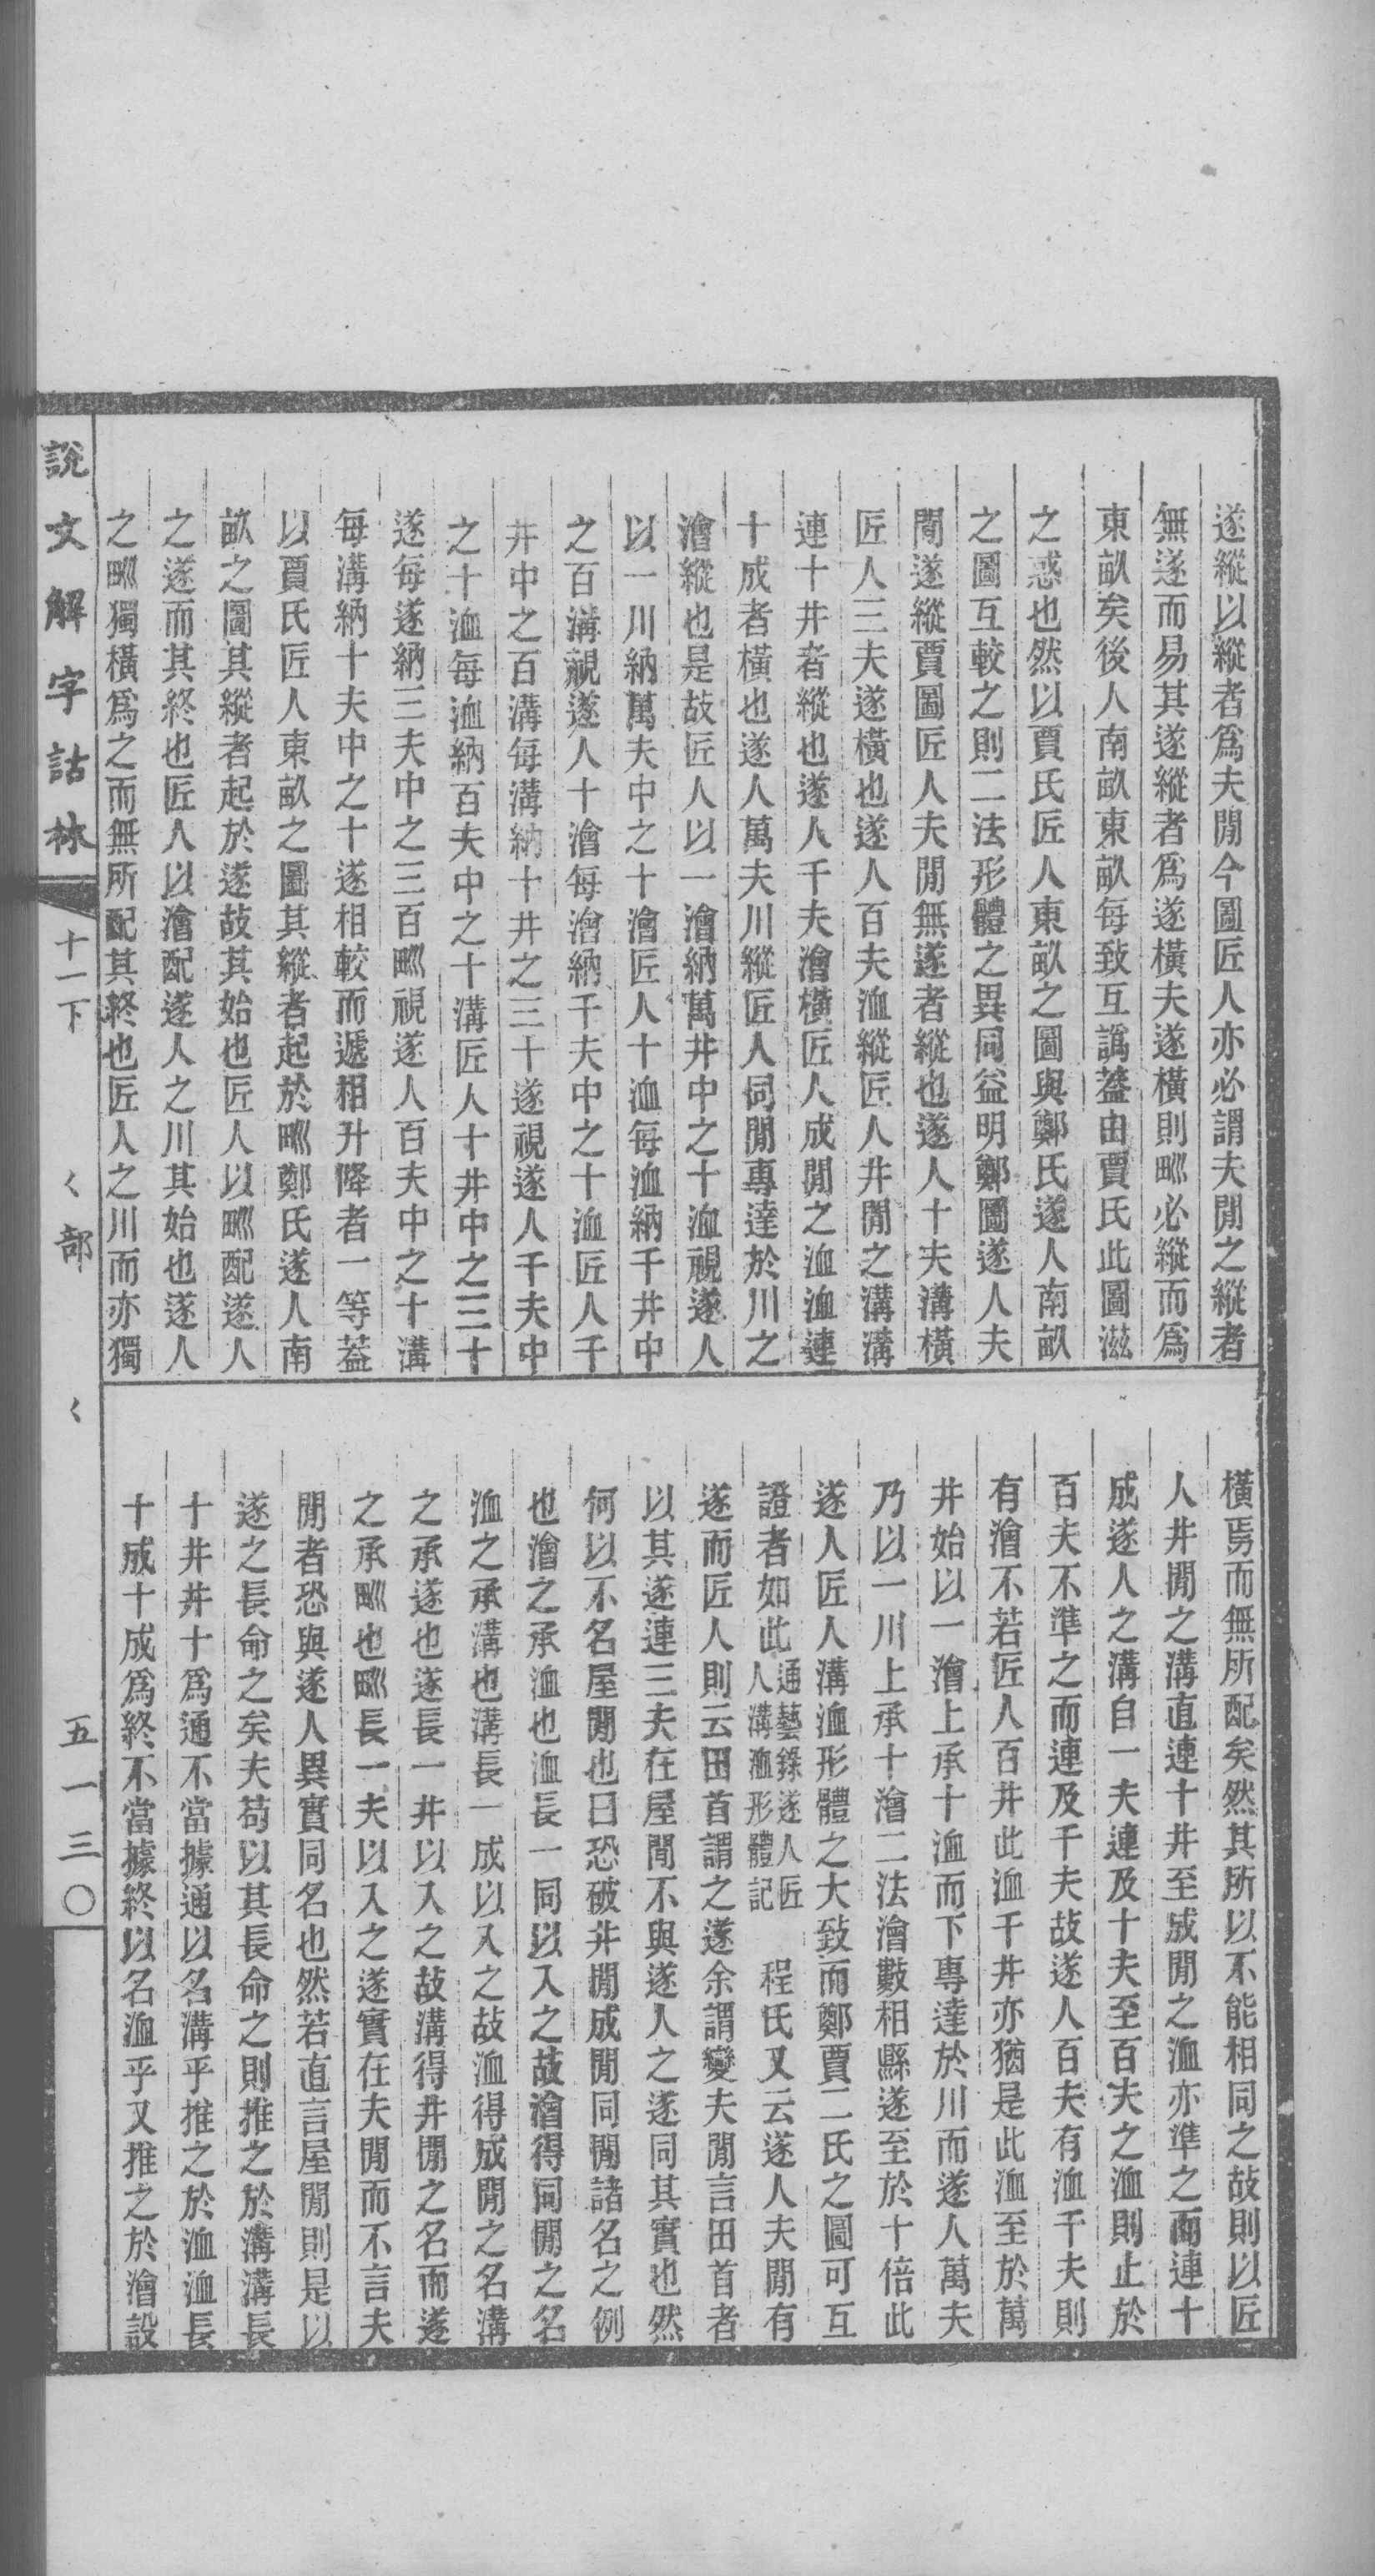 遂縱以縱者爲夫閒今圖匠人亦必謂夫閒之縱者
無遂而易其遂縱者爲遂橫夫遂橫則𤰕必縱而爲
東畝矣後人南畝東畝每致互譌葢由賈氏此圖滋
之惑也然以賈氏匠人東畝之圖與鄭氏遂人南畝
之圖互較之則二法形體之異同益明鄭圖遂人夫
閒遂縱賈圖匠人夫閒無遂者縱也遂人十夫溝橫
匠人三夫遂橫也遂人百夫洫縱匠人井閒之溝溝
連十井者縱也遂人千夫澮橫匠人成閒之洫洫連
十成者橫也遂人萬夫川縱匠人同閒專達於川之
澮縱也是故匠人以一澮納萬井中之十洫視遂人
以一川納萬夫中之十澮匠人十洫每洫納千井中
之百溝視遂人十澮每澮納千夫中之十洫匠人千
井中之百溝每溝納十井之三十遂視遂人千夫中
之十洫每洫納百夫中之十溝匠人十井中之三十
遂每遂納三夫中之三百𤰕視遂人百夫中之十溝
每溝納十夫中之十遂相較而遞相升降者一等葢
以賈氏匠人東畝之圖其縱者起於𤰕鄭氏遂人南
畝之圖其縱者起於遂故其始也匠人以𤰕配遂人
之遂而其終也匠人以澮配遂人之川其始也遂人
之𤰕獨橫爲之而無所配其終也匠人之川而亦獨
橫焉而無所配矣然其所以不能相同之故則以匠
人井閒之溝直連十井至成閒之洫亦準之而連十
成遂人之溝自一夫連及十夫至百夫之洫則止於
百夫不準之而連及千夫故遂人百夫有洫千夫則
有澮不若匠人百井此洫千井亦猶是此洫至於萬
井始以一澮上承十洫而下專達於川而遂人萬夫
乃以一川上承十澮二法澮數相縣遂至於十倍此
遂人匠人溝洫形體之大致而鄭賈二氏之圖可互
證者如此通藝錄遂人匠人溝洫形體記　程氏又云遂人夫閒有
遂而匠人則云田首謂之遂余謂變夫閒言田首者
以其遂連三夫在屋閒不與遂人之遂同其實也然
何以不名屋閒也曰恐破井閒成閒同閒諸名之例
也澮之承洫也洫長一同以入之故澮得同閒之名
洫之承溝也溝長一成以入之故洫得成閒之名溝
之承遂也遂長一井以入之故溝得井閒之名而遂
之承𤰕也𤰕長一夫以入之遂實在夫閒而不言夫
閒者恐與遂人異實同名也然若直言屋閒則是以
遂之長命之矣夫苟以其長命之則推之於溝溝長
十井井十爲通不當據通以名溝乎推之於洫洫長
十成十成爲終不當據終以名洫乎又推之於澮設
說文解字詁林
十一下
𡿨部
𡿨
五一三〇